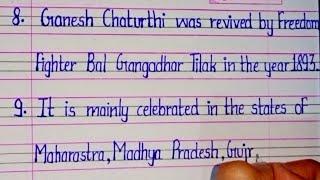 8. Ganesh Chaturthi was revived by Freedom
Fighter Bal Gangadhar Tilak in the year 1893.
9. It is mainly celebrated in the states of
Maharastra, Madhya Pradesh, Gujr